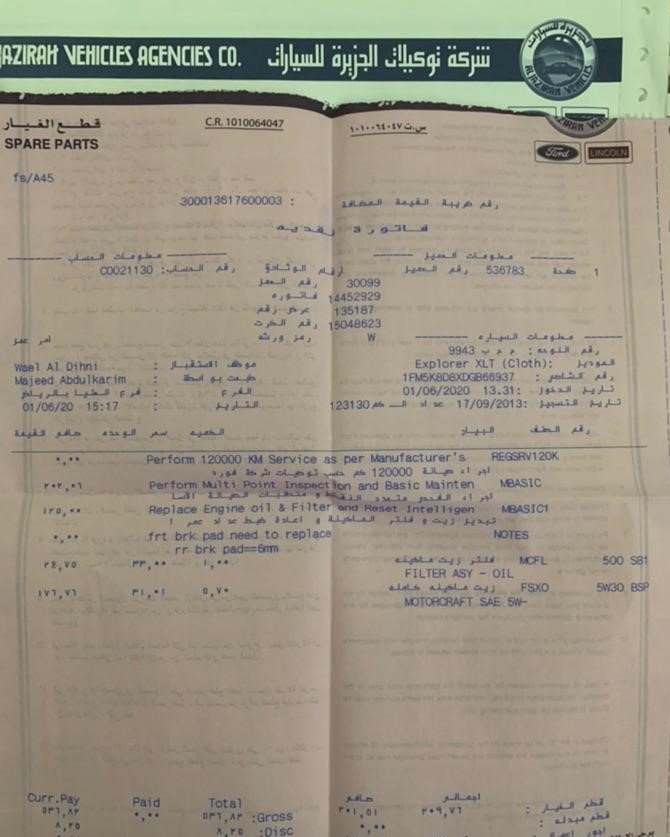 AZIRAH VEHICLES AGENCIES CO. شركة توكيلات الجزيرة للسيارات
ALJAZIRAH VEHICLES
قطع الغيار
SPARE PARTS
C.R. 1010064047
س.ت ١٠١٠٠٦٤٠٤٧
Ford LINCOLN
fs/A45
رقم ضريبة القيمة المضافة : 300013617600003
فاتورة نقدية
معلومات العميل معلومات الحساب
1 صفحة 536783 رقم العميل رقم الحساب: C0021130
30099
فاتوره 14452929
135187
رقم الكرت 15048623
معلومات السياره W رمز ورشة
رقم اللوحه: م م ب 9943
الموديل Explorer XLT (Cloth): موظف الاستقبال : Wael Al Dihni
1FM5K8D8XDGB66937 طبعت بواسطة : Majeed Abdulkarim
تاريخ الدخول :01/06/2020 13.31 الفرع : فرع العليا بالرياض
تاريخ التسجيل :17/09/2013 عداد الـ كم 123130 التاريخ : 01/06/20 15:17
رقم الصنف البيان الكميه سعر الوحده صافى القيمة
REGSRV120K Perform 120000 KM Service as per Manufacturer's ٠,٠٠
اجراء صيانة 120000 كم حسب توصيات شركة فورد
MBASIC Perform Multi Point Inspection and Basic Mainten ٢٠٢,٠٦
اجراء الفحص متعدد النقاط و متطلبات الصيانة الاسا
MBASIC1 Replace Engine oil & Filter and Reset Intelligen ١٢٥,٠٠
تبديل زيت و فلتر الماكينة و اعادة ضبط عداد عمر ا
NOTES frt brk pad need to replace ٠,٠٠
rr brk pad==6mm
500 SB1 MCFL فلتر زيت ماكينه ١,٠٠ ٣٣,٠٠ ٢٤,٧٥
FILTER ASY - OIL
5W30 BSP FSXO زيت ماكينه كامله ٥,٧٠ ٣١,٠١ ١٧٦,٧٦
MOTORCRAFT SAE 5W-
اجمالى صافى Total Paid Curr.Pay
قطع الغيار : ٢٠٩,٧٦ ٢٠١,٥١ Gross: ٥٣٦,٨٢ ٠,٠٠ ٥٣٦,٨٢
٠,٠٠ Disc: ٨,٢٥ ٨,٢٥